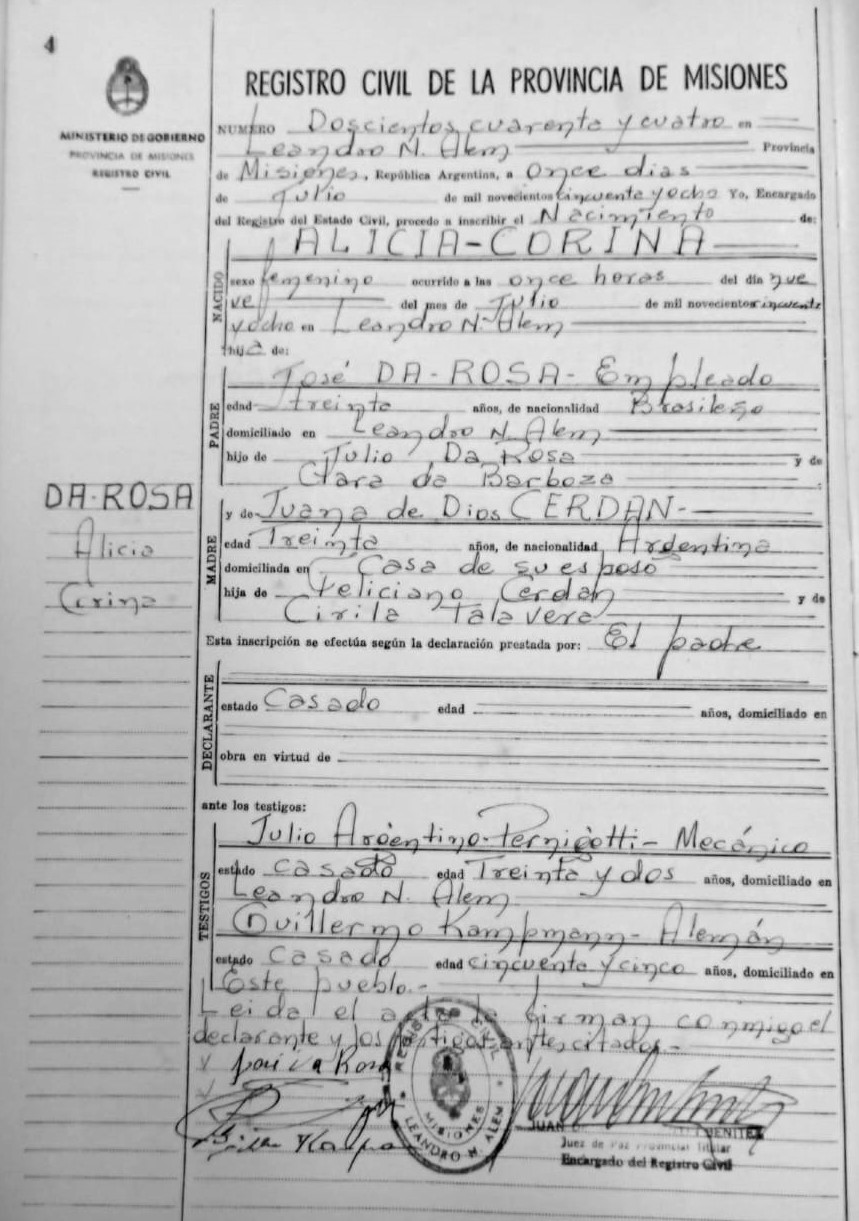 4
MINISTERIO DE GOBIERNO
PROVINCIA DE MISIONES
REGISTRO CIVIL
DA-ROSA
Alicia
Corina
REGISTRO CIVIL DE LA PROVINCIA DE MISIONES
NUMERO Doscientos cuarenta y cuatro en
Leandro N. Alem Provincia
de Misiones, República Argentina, a once dias
de Julio de mil novecientos cincuenta y ocho Yo, Encargado
del Registro del Estado Civil, procedo a inscribir el Nacimiento de:
NACIDO
ALICIA-CORINA
sexo femenino ocurrido a las once horas del día nue
ve del mes de Julio de mil novecientos cincuenta
y ocho en Leandro N. Alem
hija de:
PADRE
José DA-ROSA- Empleado
edad treinta años, de nacionalidad Brasileño
domiciliado en Leandro N. Alem
hijo de Julio Da Rosa y de
Clara de Barboza
MADRE
y de Juana de Dios CERDAN-
edad Treinta años, de nacionalidad Argentina
domiciliada en Casa de su esposo
hija de Feliciano Cerdan y de
Cirila Talavera
Esta inscripción se efectúa según la declaración prestada por: El padre
DECLARANTE
estado Casado edad años, domiciliado en
obra en virtud de
ante los testigos:
TESTIGOS
Julio Argentino Pernigotti- Mecánico
estado casado edad Treinta y dos años, domiciliado en
Leandro N. Alem
Guillermo Kampmann- Alemán
estado Casado edad cincuenta y cinco años, domiciliado en
Este pueblo.-
Leida el acta la firman conmigo el
declarante y los testigos antes citados.-
REGISTRO CIVIL
MISIONES
LEANDRO N. ALEM
JUAN BENITEZ
Juez de Paz Provincial Titular
Encargado del Registro Civil